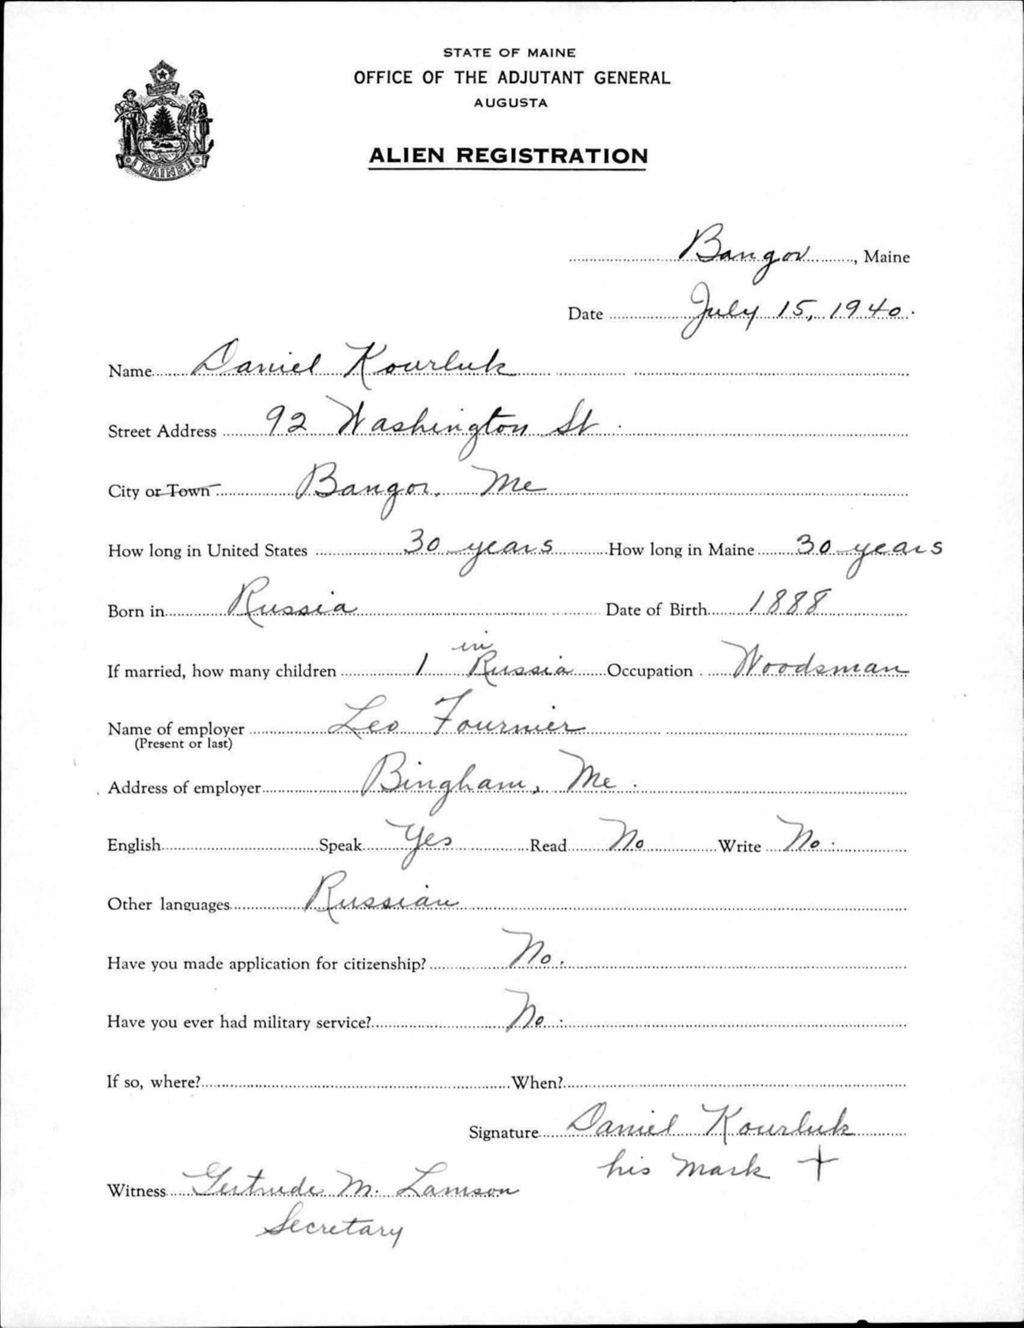 STATE OF MAINE
OFFICE OF THE ADJUTANT GENERAL
AUGUSTA
ALIEN REGISTRATION
MAINE
Bangor, Maine
Date July 15, 1940.
Name Daniel Kourluk
Street Address 92 Washington St.
City or Town Bangor, Me
How long in United States 30 years How long in Maine 30 years
Born in Russia Date of Birth 1888
If married, how many children 1 in Russia Occupation Woodsman
Name of employer Leo Fournier
(Present or last)
Address of employer Bingham, Me.
English Speak Yes Read No Write No.
Other languages Russian
Have you made application for citizenship? No.
Have you ever had military service? No.
If so, where? When?
Signature Daniel Kourluk
his mark +
Witness Gertrude M. Lamson
Secretary